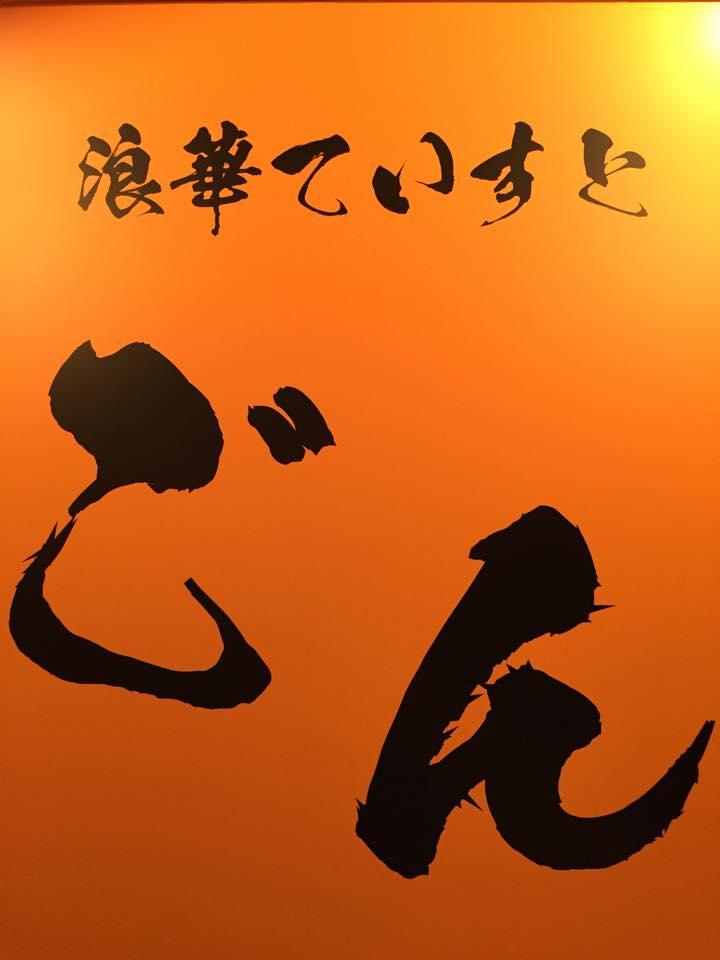 浪華ていすと
ごん